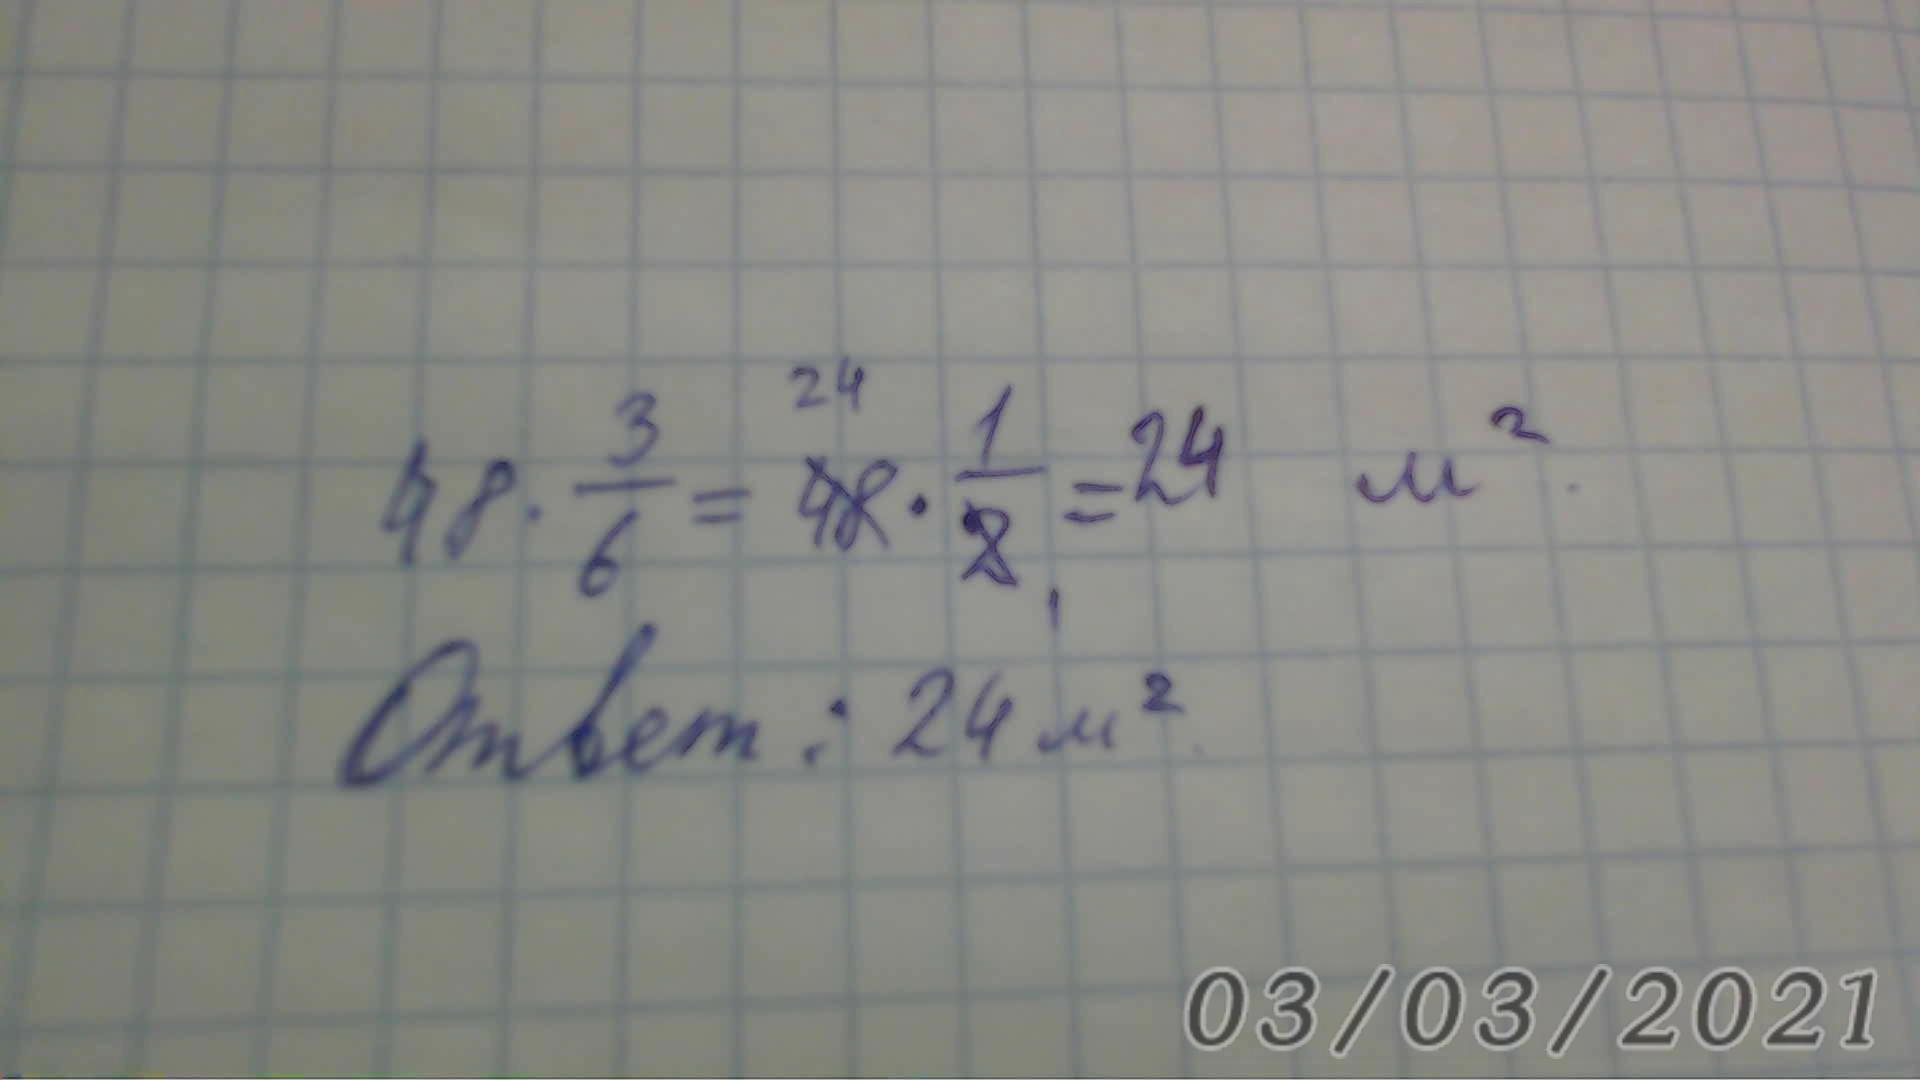 48 · 3/6 = 48 · 1/2 = 24 м².
24
1
Ответ: 24 м².
03/03/2021